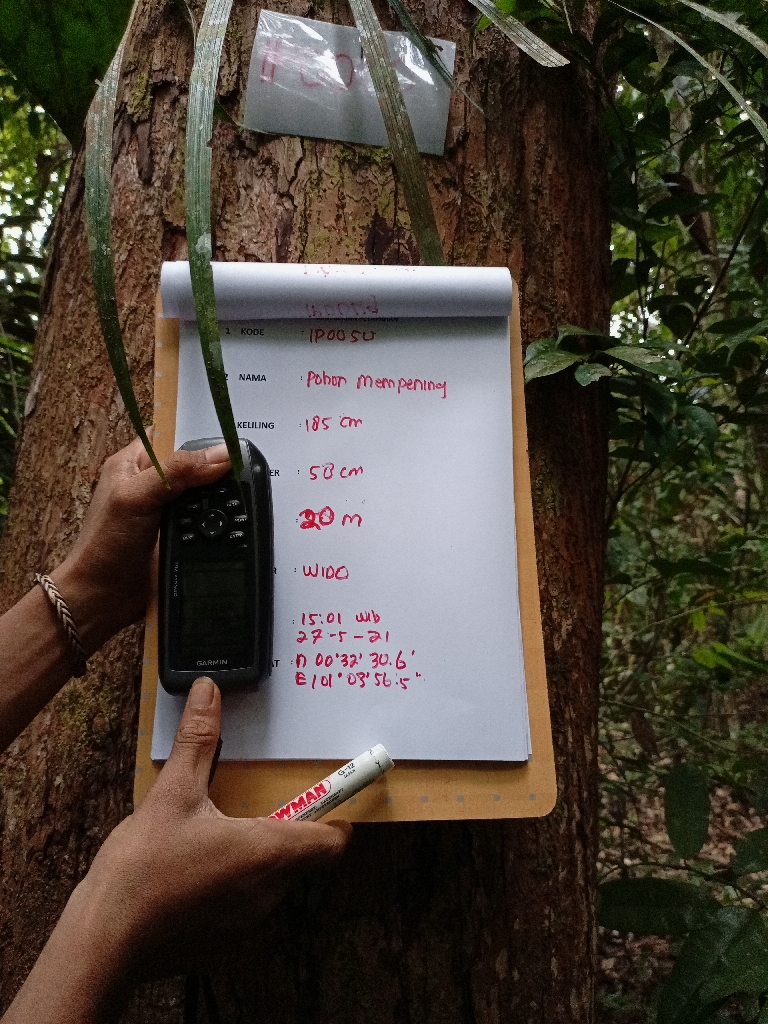 1 KODE : IP00SU
2 NAMA : Pohon Mempening
KELILING : 185 cm
ER : 58 cm
: 20 m
R : WIDO
: 15.01 wib
27-5-21
AT : N 00°32' 30.6'
E 101° 03' 56.5"
GARMIN
OWMAN
G-12
JAPAN